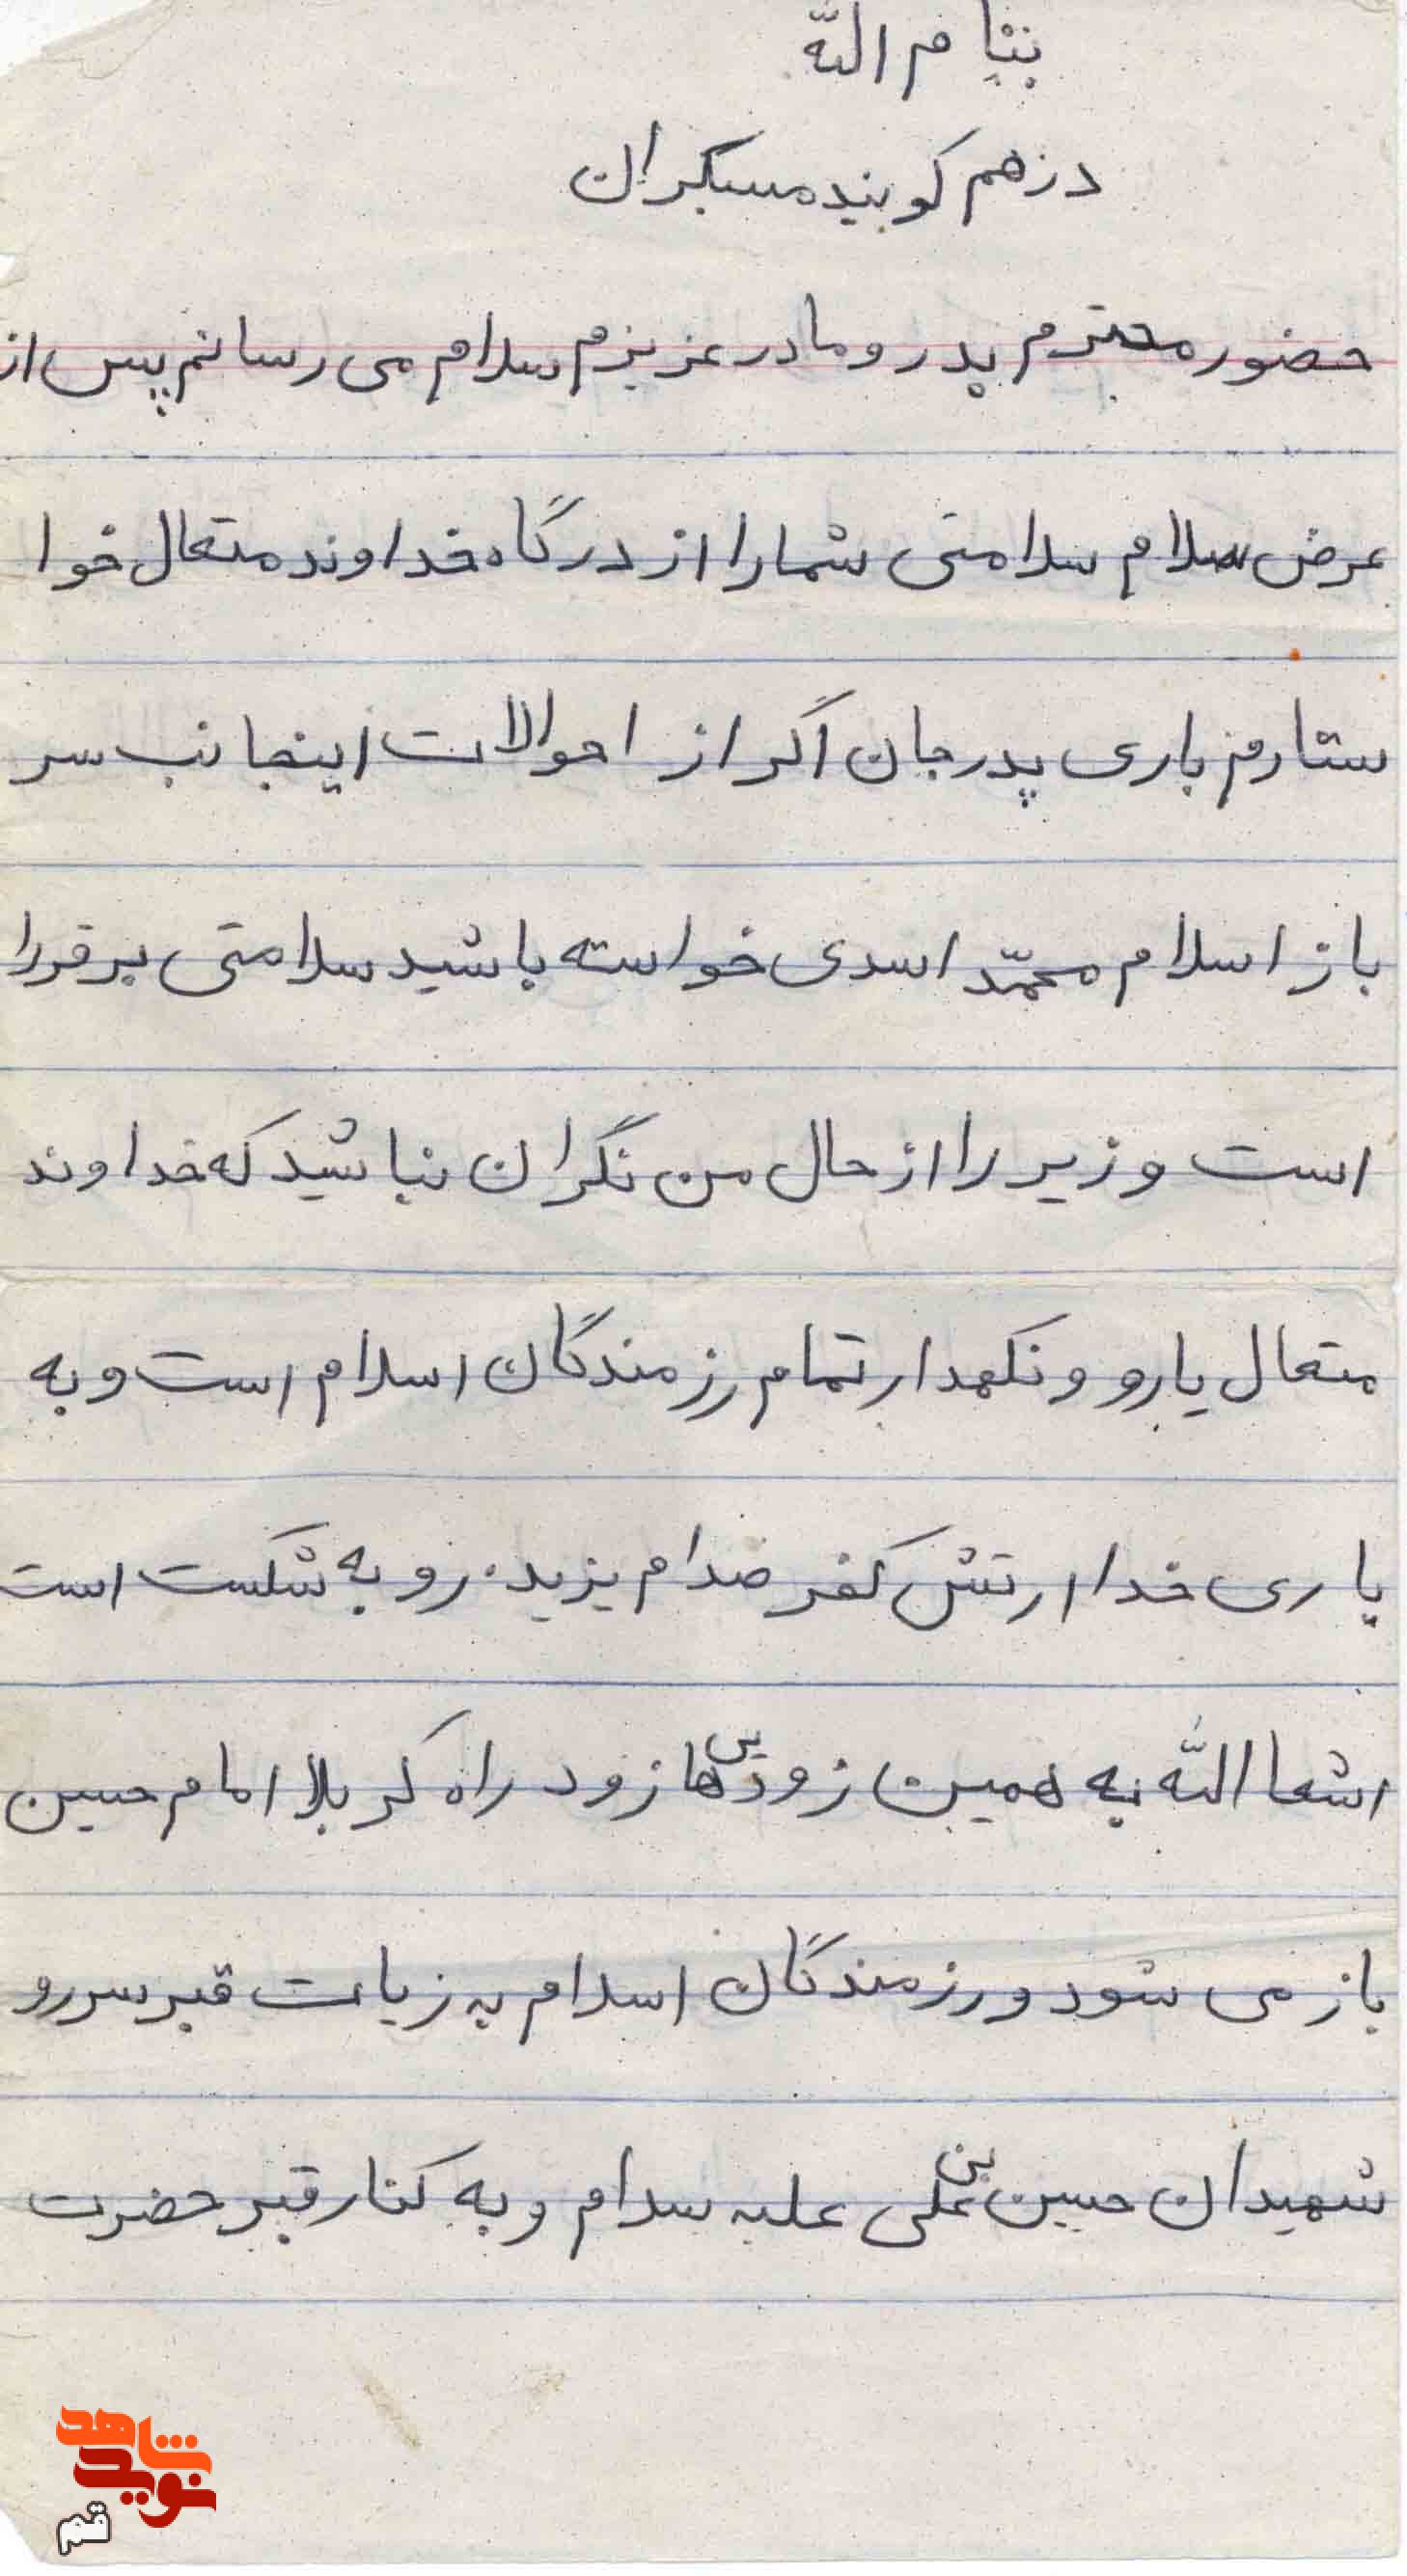 بنام الله
درهم کوبیند مستکبران
حضور محترم پدر و مادر عزیزم سلام می رسانم پس از
عرض سلام سلامتی شما را از درگاه خداوند متعال خوا
ستارم باری پدر جان اگر از احوالات اینجانب سر
باز اسلام محمّد اسدی خواسته باشید سلامتی برقررا
است و زیر را از حال من نگران نباشید که خداوند
متعال یارو و نگهدار تمام رزمندگان اسلام است و به
یاری خدا ارتش کفر صدام یزید رو به شکست است
انشعا الله به همین زودیی ها زود راه کربلا امام حسین
باز می شود و رزمندگان اسلام به زیات قبر سررو
شهیدان حسین بن علی علیه سلام و به کنار قبر حضرت
شاهد
نوید
قم